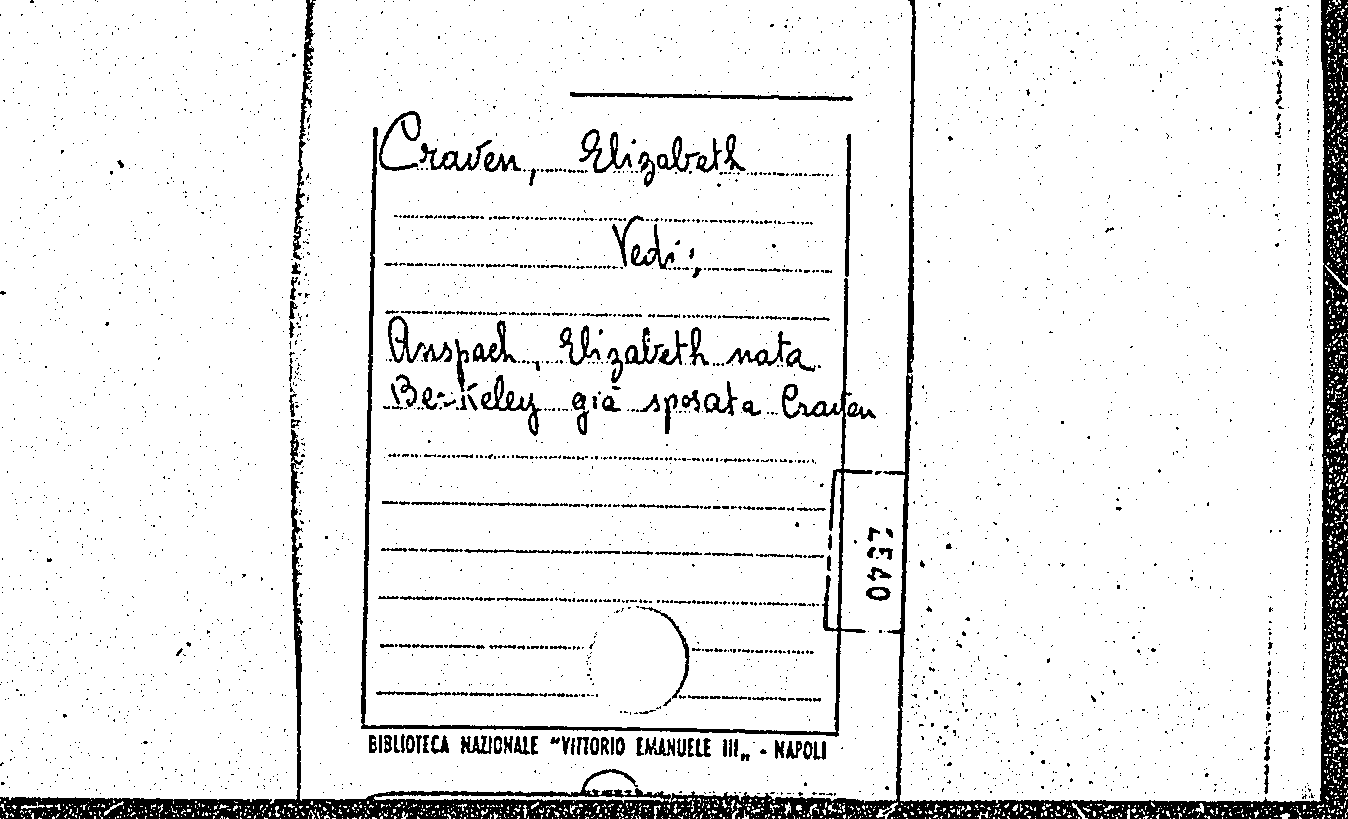 Craven, Elizabeth
Vedi:
Anspach, Elizabeth nata
Berkeley già sposata Craven
2540
BIBLIOTECA NAZIONALE "VITTORIO EMANUELE III„ - NAPOLI